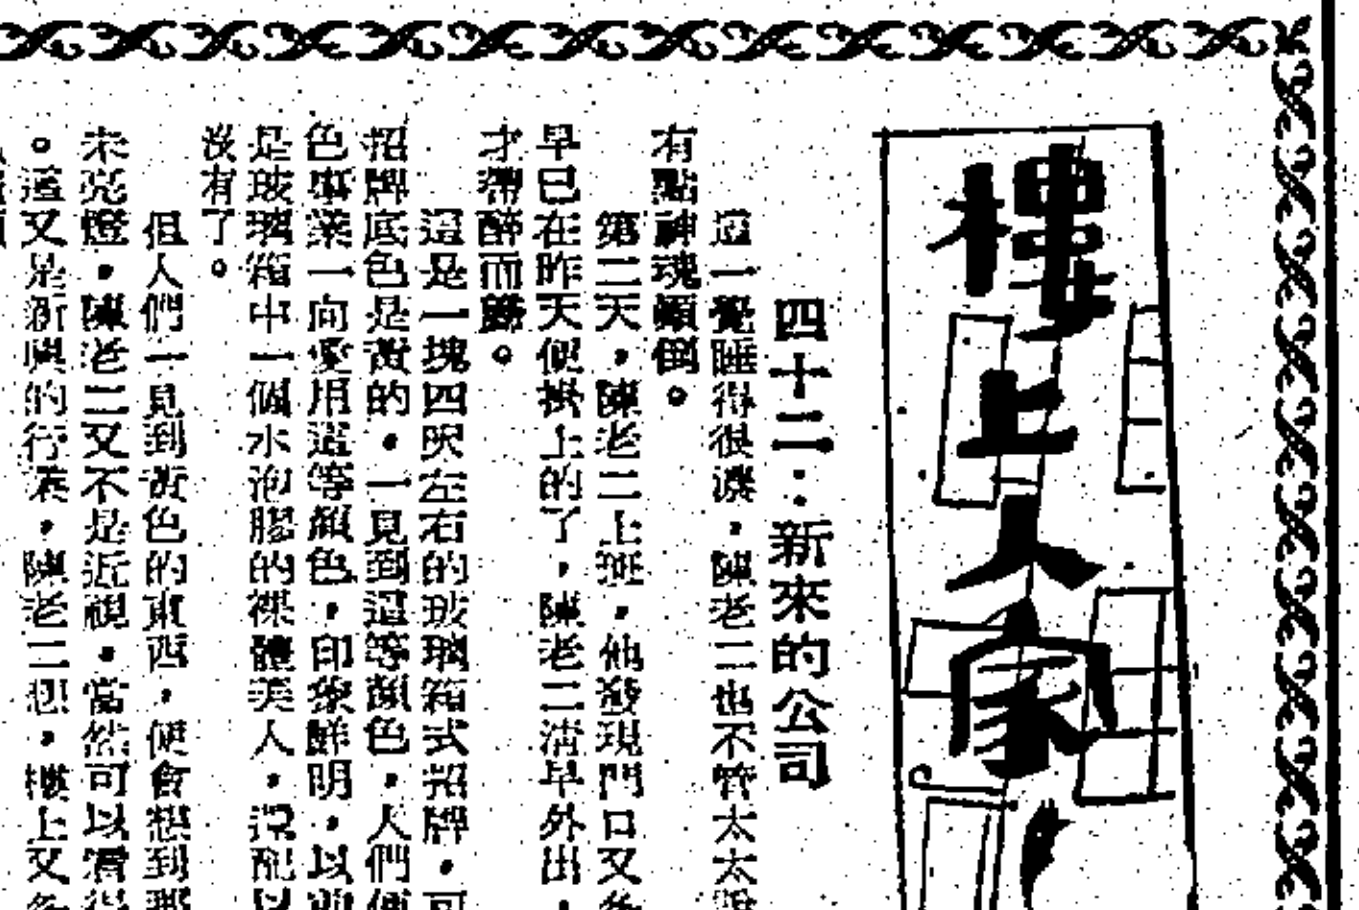 樓上人家
四十二：新來的公司
這一覺睡得很濃，陳老二也不管太太
有點神魂顛倒。
第二天，陳老二上班，他發現門口又
早已在昨天便掛上的了，陳老二清早外出，
才帶醉而歸。
這是一塊四呎左右的玻璃箱式招牌，可
招牌底色是黃的，一見到這等顏色，人們便
色事業一向愛用這等顏色，印象鮮明，以前
是玻璃箱中一個水泡膠的裸體美人，還配以
沒有了。
但人們一見到黃色的東西，便會想到那
未亮燈，陳老二又不是近視，當然可以看得
。這又是新興的行業，陳老二想，樓上又多